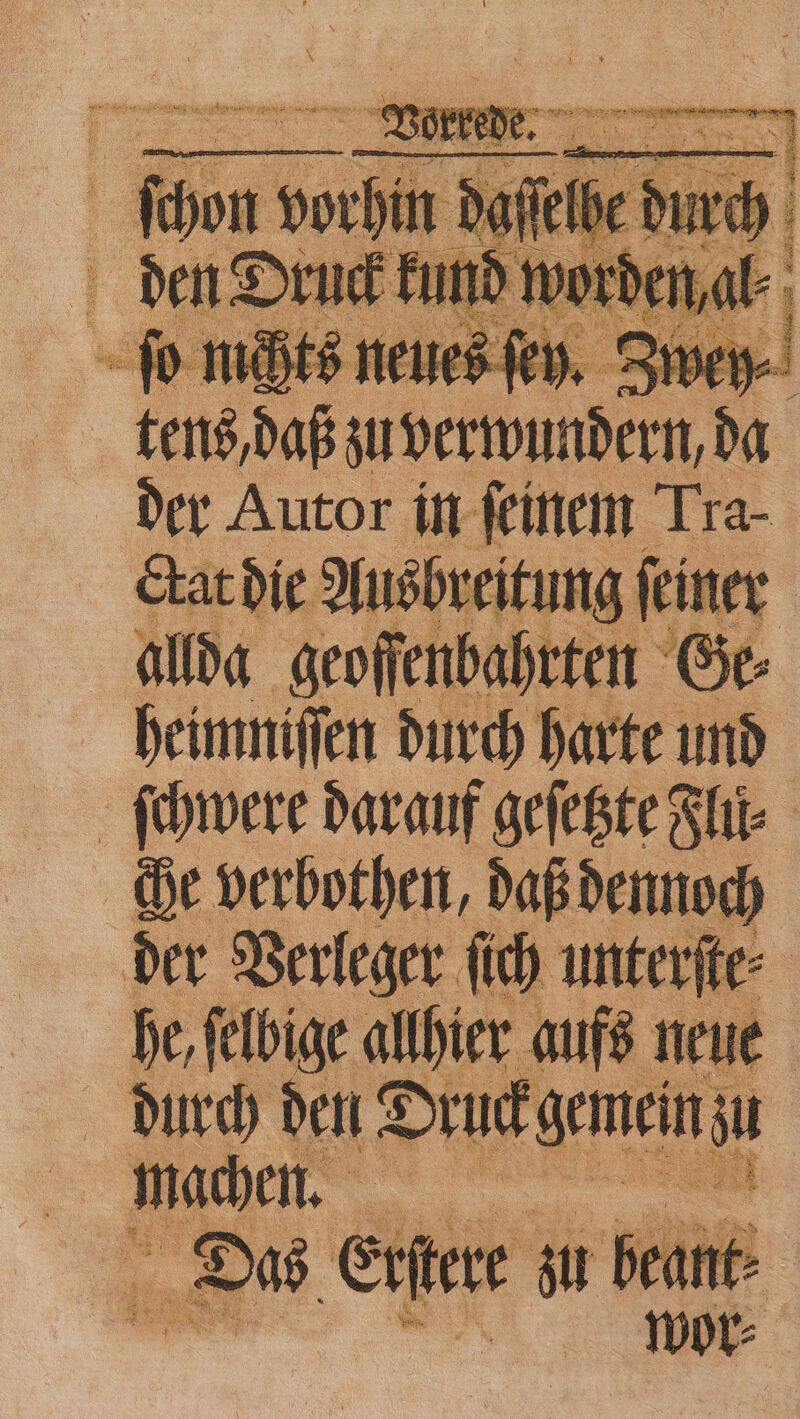 Vorrede.
ſchon vorhin daſſelbe durch
den Druck kund worden, al⸗
ſo nichts neues ſey. Zwey⸗
tens, daß zu verwundern, da
der Autor in ſeinem Tra-
ctat die Ausbreitung ſeiner
allda geoffenbahrten Ge⸗
heimniſſen durch harte und
ſchwere darauf geſetzte Fluͤ⸗
che verbothen, daß dennoch
der Verleger ſich unterſte⸗
he, ſelbige allhier aufs neue
durch den Druck gemein zu
machen.
Das Erſtere zu beant⸗
wor⸗